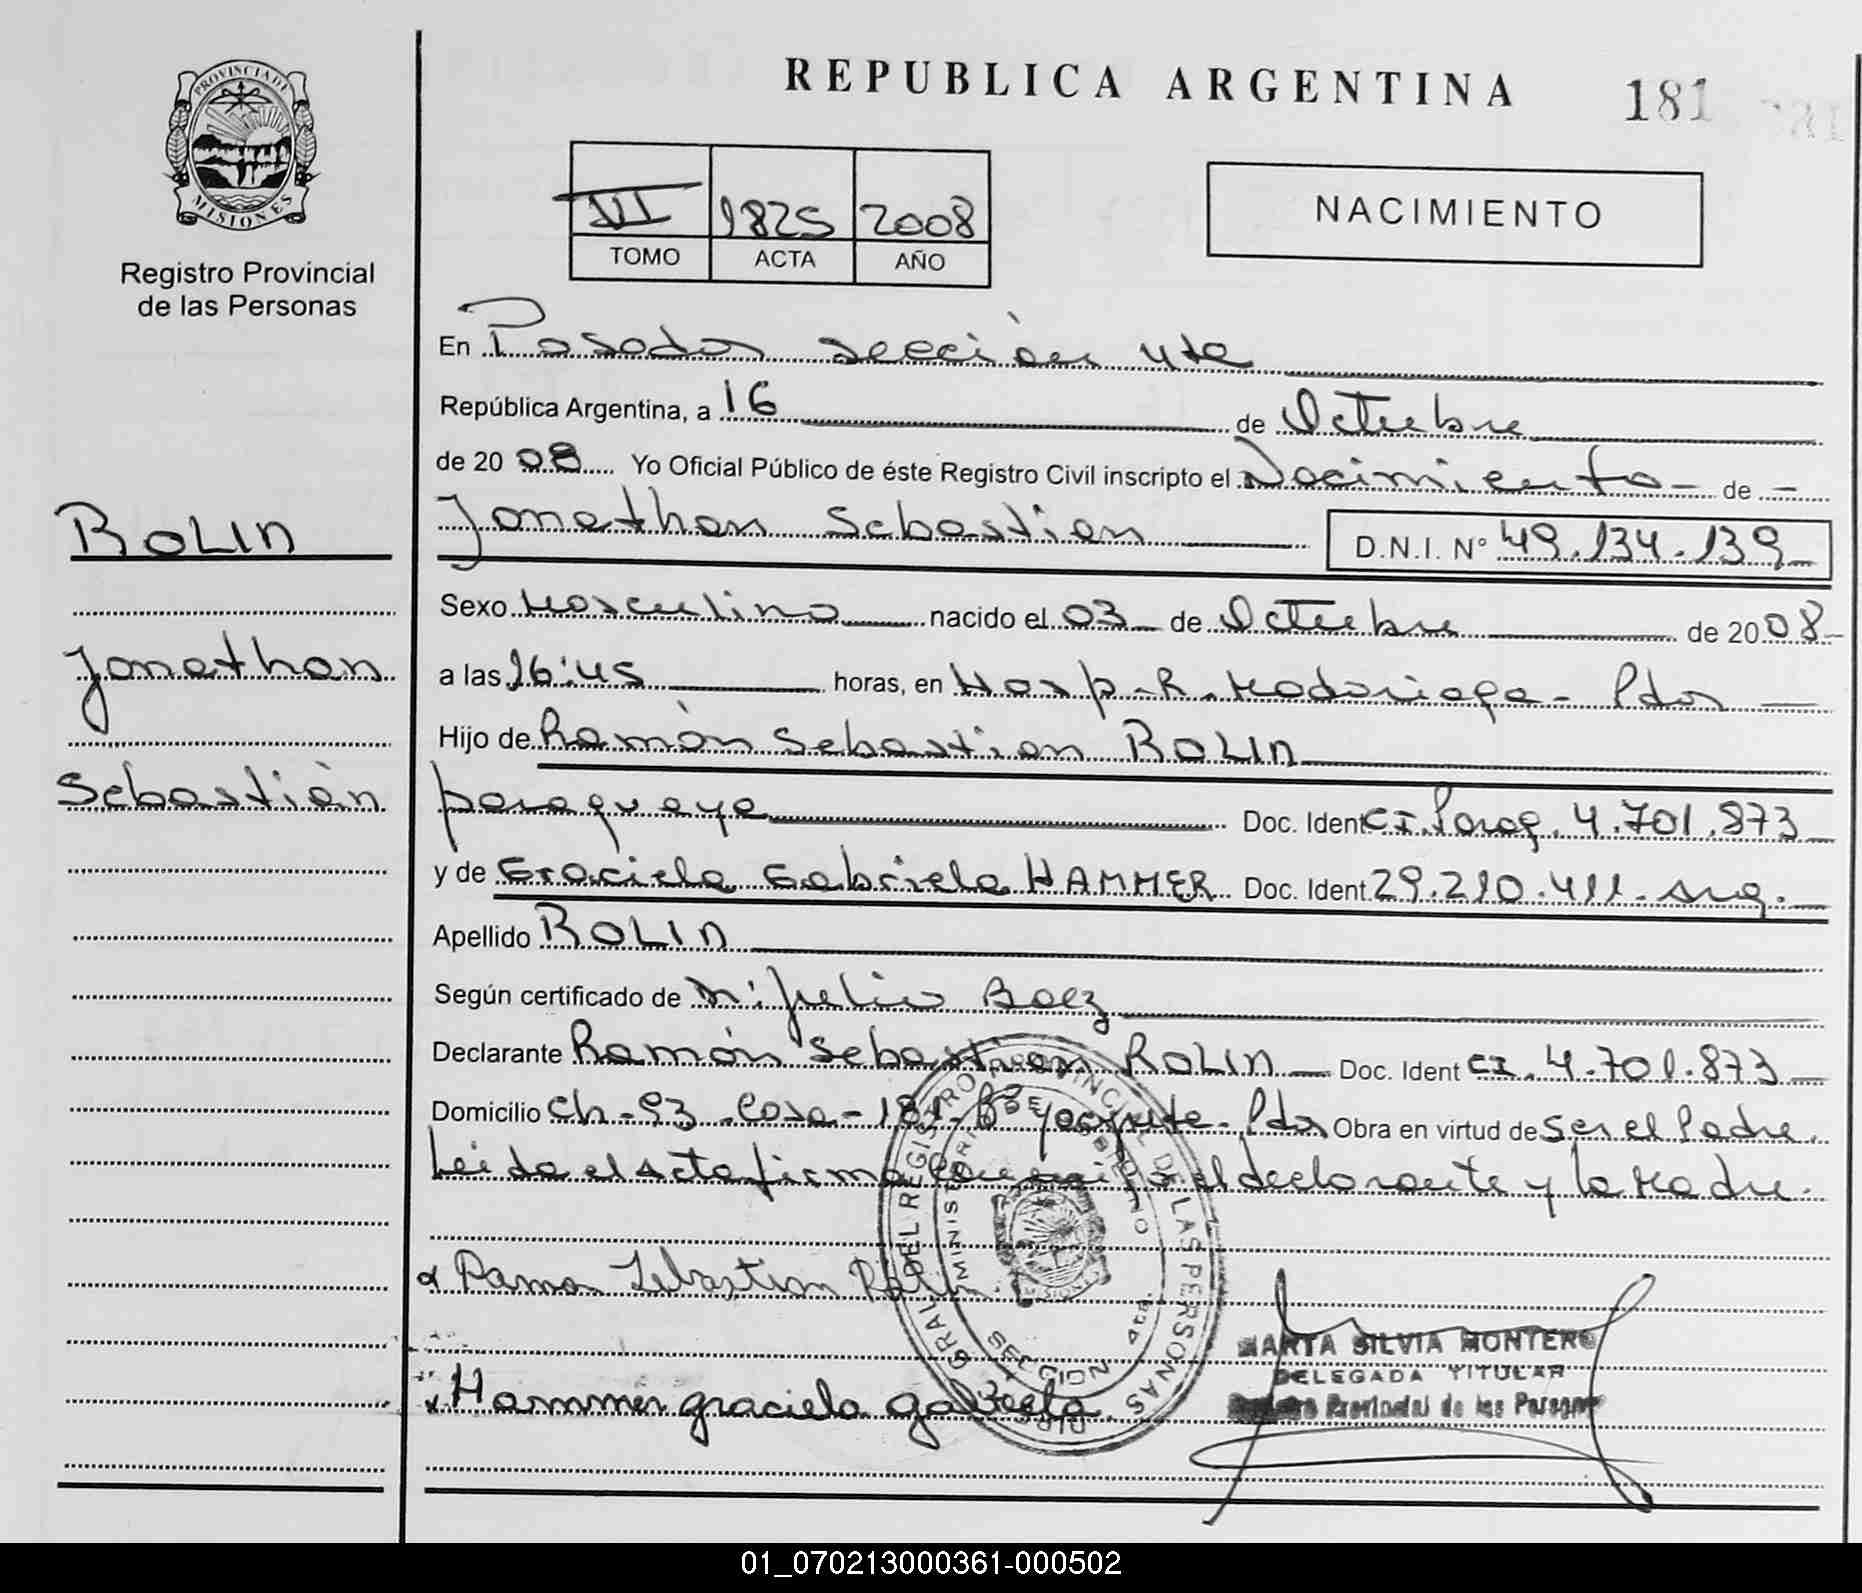 REPUBLICA ARGENTINA
181
PROVINCIA DE
MISIONES
Registro Provincial
de las Personas
1825 2008
TOMO ACTA AÑO
NACIMIENTO
En Posadas sección 4ta
República Argentina, a 16 de Octubre
de 2008 Yo Oficial Público de éste Registro Civil inscripto el Nacimiento - de -
Jonathan Sebastian D.N.I. Nº 49.134.139
ROLIN
Jonathan
Sebastián
Sexo Masculino nacido el 03 de Octubre de 2008
a las 16:45 horas, en Hosp. R. Madariaga - Pdas
Hijo de Ramón Sebastian ROLIN
paraguaya Doc. Ident CI. Parag. 4.701.873
y de Graciela Gabriela HAMMER Doc. Ident. 29.210.411. Arg.
Apellido ROLIN
Según certificado de Julio Baez
Declarante Ramón Sebastian ROLIN Doc. Ident CI. 4.701.873
Domicilio Ch - 93 . Casa - 181 - Bº Yacyreta - Pdas Obra en virtud de ser el Padre.
Leida el Acta firma el declarante y la Madre.
Ramon Sebastian Rolin
Hammer graciela gabriela
MARTA SILVIA MONTERO
DELEGADA TITULAR
Registro Provincial de las Personas
DIR. GRAL. DEL REGISTRO PROVINCIAL DE LAS PERSONAS
MINISTERIO DE GOBIERNO
SECCION 4ta.
MISIONES
01_070213000361-000502